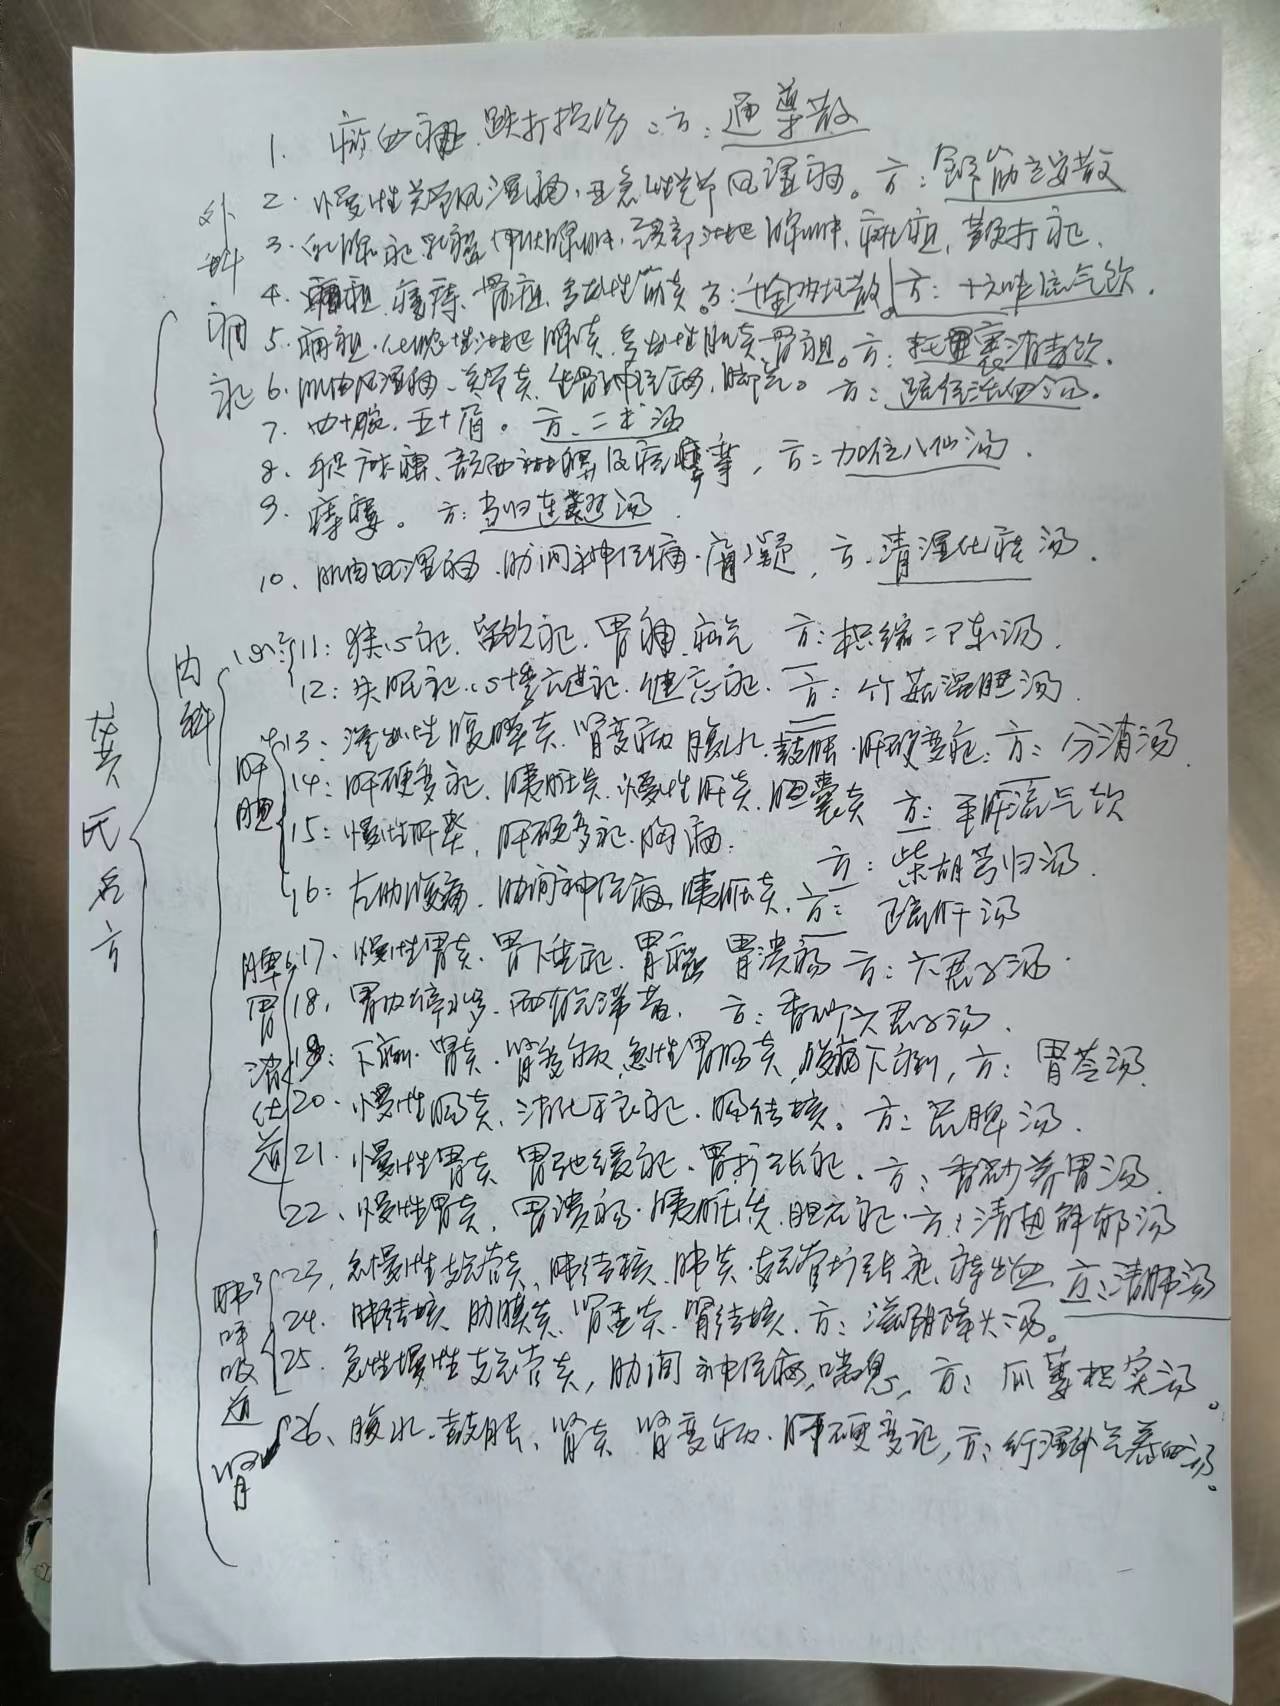 龚氏名方
外科病症
1. 瘀血 跌打损伤：方：通导散
2. 慢性关节风湿痛，亚急性关节风湿痛。方：舒筋立安散
3. 乳腺症 乳癌 甲状腺肿，颈部淋巴腺肿、瘀血
4. 痈疽 瘰疬 骨疽 多发性筋炎。方：千金内托散 方：十六味流气饮.
5. 痈疽 化脓性淋巴腺炎 多发性肌炎 骨疽。方：托里消毒饮.
6. 肌肉风湿痛、关节炎、坐骨神经痛，脚气。方：疏经活血汤。
7. 四十腕，五十肩。方：二术汤
8. 手足麻痹、方：加味八仙汤.
9. 瘰疬。方：当归连翘汤
10. 肌肉风湿痛、肋间神经痛，方：清湿化痰汤.
内科
心 11：狭心症、留饮症、胃痛、疝气 方：枳缩二陈汤.
12：失眠症、心悸亢进症、健忘症. 方：竹茹温胆汤
肝胆 13、渗出性腹膜炎、肾变病 腹水、鼓胀、肝硬变症：方：分消汤.
14：肝硬变症、胰脏炎、慢性肝炎、胆囊炎 方：平肝流气饮
15：慢性肝炎，肝硬变症、胸痛. 方：柴胡芎归汤
16：左肋腹痛、肋间神经痛、胰脏炎. 方：疏肝汤
脾胃消化道 17、慢性胃炎、胃下垂症、胃癌 胃溃疡 方：六君子汤.
18、胃内停水 方：香砂六君子汤.
19：下痢、肾炎、肾变病、急性胃肠炎，腹痛下痢，方：胃苓汤
20、慢性肠炎、消化不良症、肠结核。方：启脾汤.
21、慢性胃炎、胃弛缓症、胃扩张症. 方：香砂养胃汤.
22、慢性胃炎，胃溃疡、胰脏炎、胆石症. 方：清热解郁汤
肺呼吸道 23、急慢性支气管炎、肺结核、肺炎、支气管扩张症、方：清肺汤
24、肺结核、肋膜炎、肾盂炎、肾结核. 方：滋阴降火汤。
25、急性慢性支气管炎，肋间神经痛，喘息，方：瓜蒌枳实汤。
肾 26、腹水、鼓胀、肾炎、肾变病、肝硬变症，方：行湿补气养血汤。